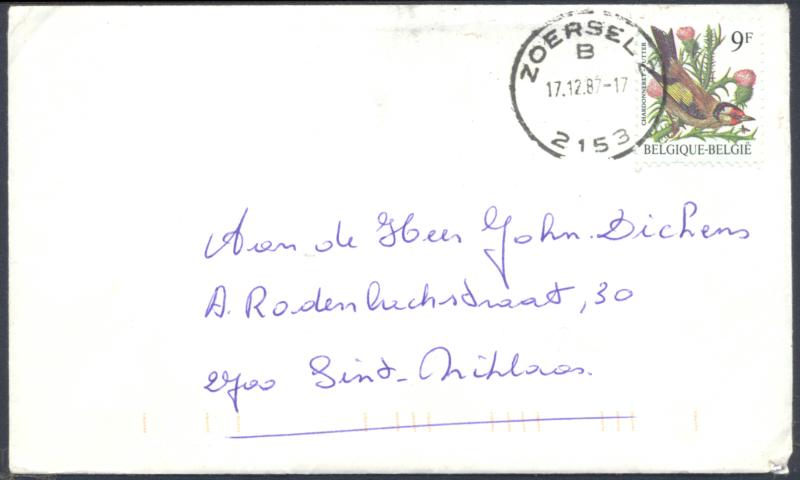 ZOERSEL
B
17.12.87-17
2153
9F
CHARDONNERET-PUTTER
BELGIQUE-BELGIË
Aan de Heer John Dickens
A. Rodenbachstraat, 30
2700 Sint-Niklaas.